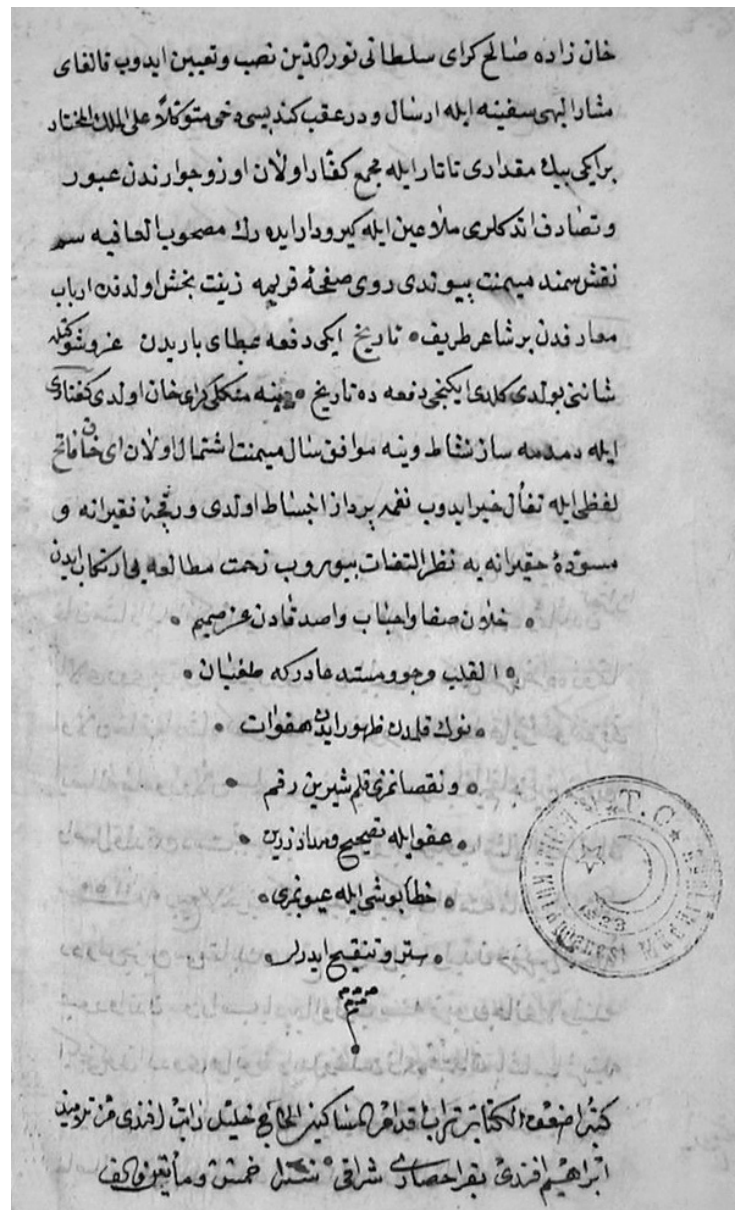 خان زاده صالح كرای سلطانی نورالدین نصب و تعیین ایدوب قالغای
مشار الیهی سفینه ایله ارسال و در عقب كندیسی دخی متوكلاً علی الملك المختار
بر ایكی بیك مقداری تاتار ایله مجمع كفار اولان اوزو جوارندن عبور
و تصادف اتدكلری ملاعین ایله كیرودار ایده رك مصحوب العافیه سم
نقش سمند میمنت پیوندی روی صفحهٔ قریمه زینت بخش اولدقده ارباب
معارفدن بر شاعر ظریف • تاریخ ایكی دفعه عطای باریدن عز و شوكتله
شاننی بولدی كلدی ایكنجی دفعه ده تاریخ • ینه منكلی كرای خان اولدی كفتاری
ایله دمدمه ساز نشاط وینه موافق سال میمنت اشتمال اولان ای خان فاتح
لفظی ایله تفأل خیر ایدوب نغمه پرداز انبساط اولدی و رقیمهٔ فقیرانه و
مسودهٔ حقیرانه یه نظر التفات بیوروب زحمت مطالعه یی ارتكاب ایدن
• خلان صفا و احباب و اصدقادن عن صمیم •
• القلب رجو و مستدعادر كه طغیان •
• نوك قلمدن ظهور ایدن هفوات •
• و نقصانمزی قلم شیرین رقم •
• عفو ایله تصحیح و مداد زرین •
• خطا پوشی ایله عیوبمزی •
• ستر و تنقیح ایدرلر •
م م م م
كتبه اضعف الكتاب تراب اقدام المساكین الحاج خلیل ذاتی افندی من تلامیذ
ابراهیم افندی بقراحصاری شرقی • سنة خمس و مأتین و الف
T.C.
1923